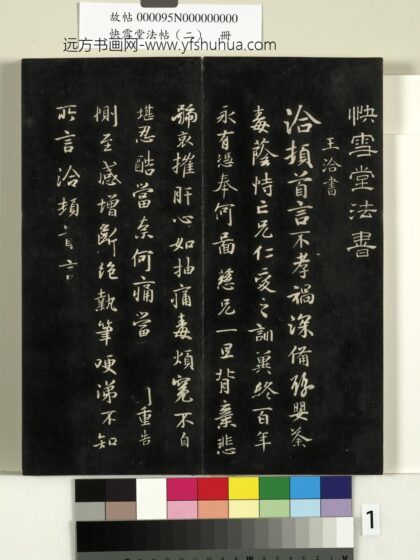 故帖000095N000000000
快雪堂法帖（二） 冊
远方书画网-www.yfshuhua.com
快雪堂法書
王洽書
洽頓首言不孝禍深備豫嬰荼
毒蔭恃亡兄仁愛之訓冀終百年
永有憑奉何圖慈兄一旦背棄悲
號哀摧肝心如抽痛毒煩冤不自
堪忍酷當奈何痛當 重告
惻至感增斷絕執筆哽涕不知
所言洽頓首言
1